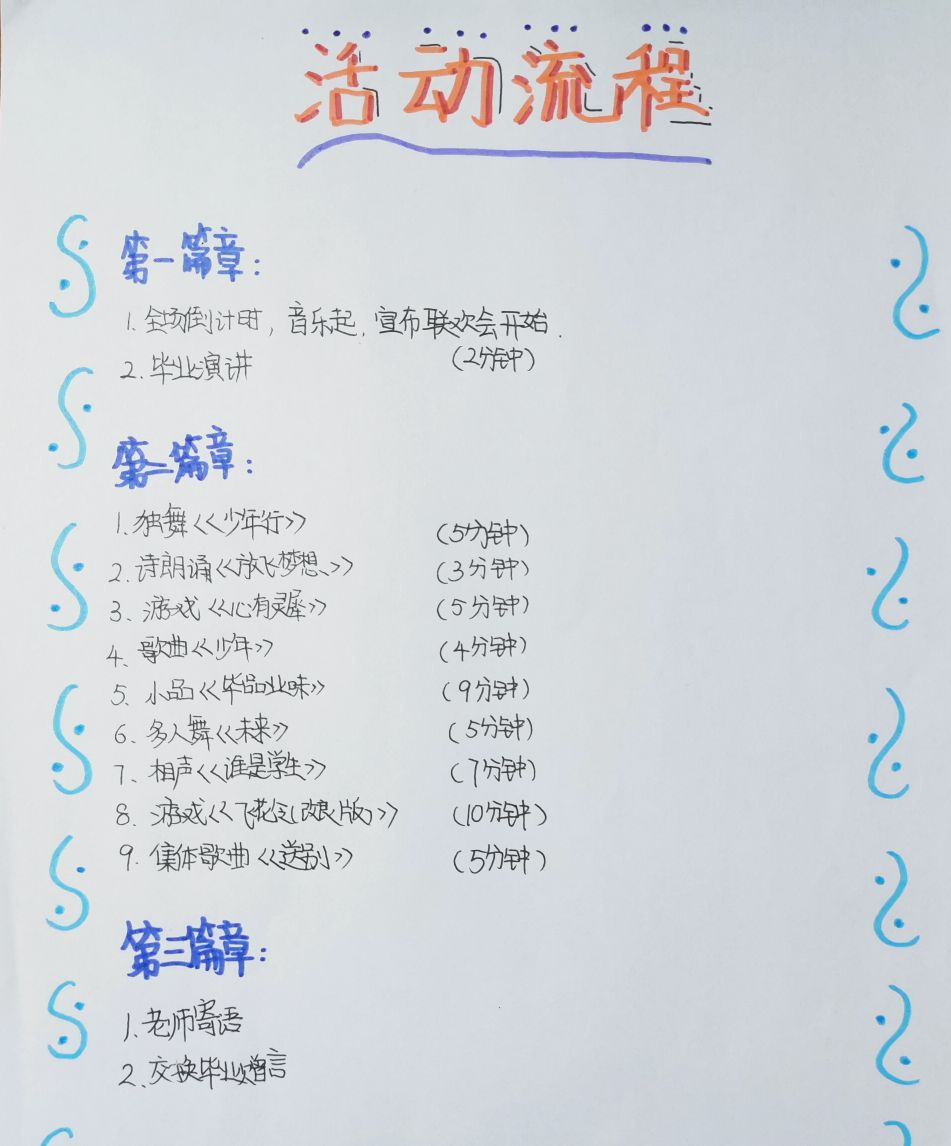 活动流程
第一篇章：
1. 全场倒计时，音乐起，宣布联欢会开始.
2. 毕业演讲 (2分钟)
第二篇章：
1. 独舞《少年行》 (5分钟)
2. 诗朗诵《放飞梦想》 (3分钟)
3. 游戏《心有灵犀》 (5分钟)
4. 歌曲《少年》 (4分钟)
5. 小品《毕品业味》 (9分钟)
6. 多人舞《未来》 (5分钟)
7. 相声《谁是学生》 (7分钟)
8. 游戏《飞花令(改良版)》 (10分钟)
9. 集体歌曲《送别》 (5分钟)
第三篇章：
1. 老师寄语
2. 交换毕业赠言